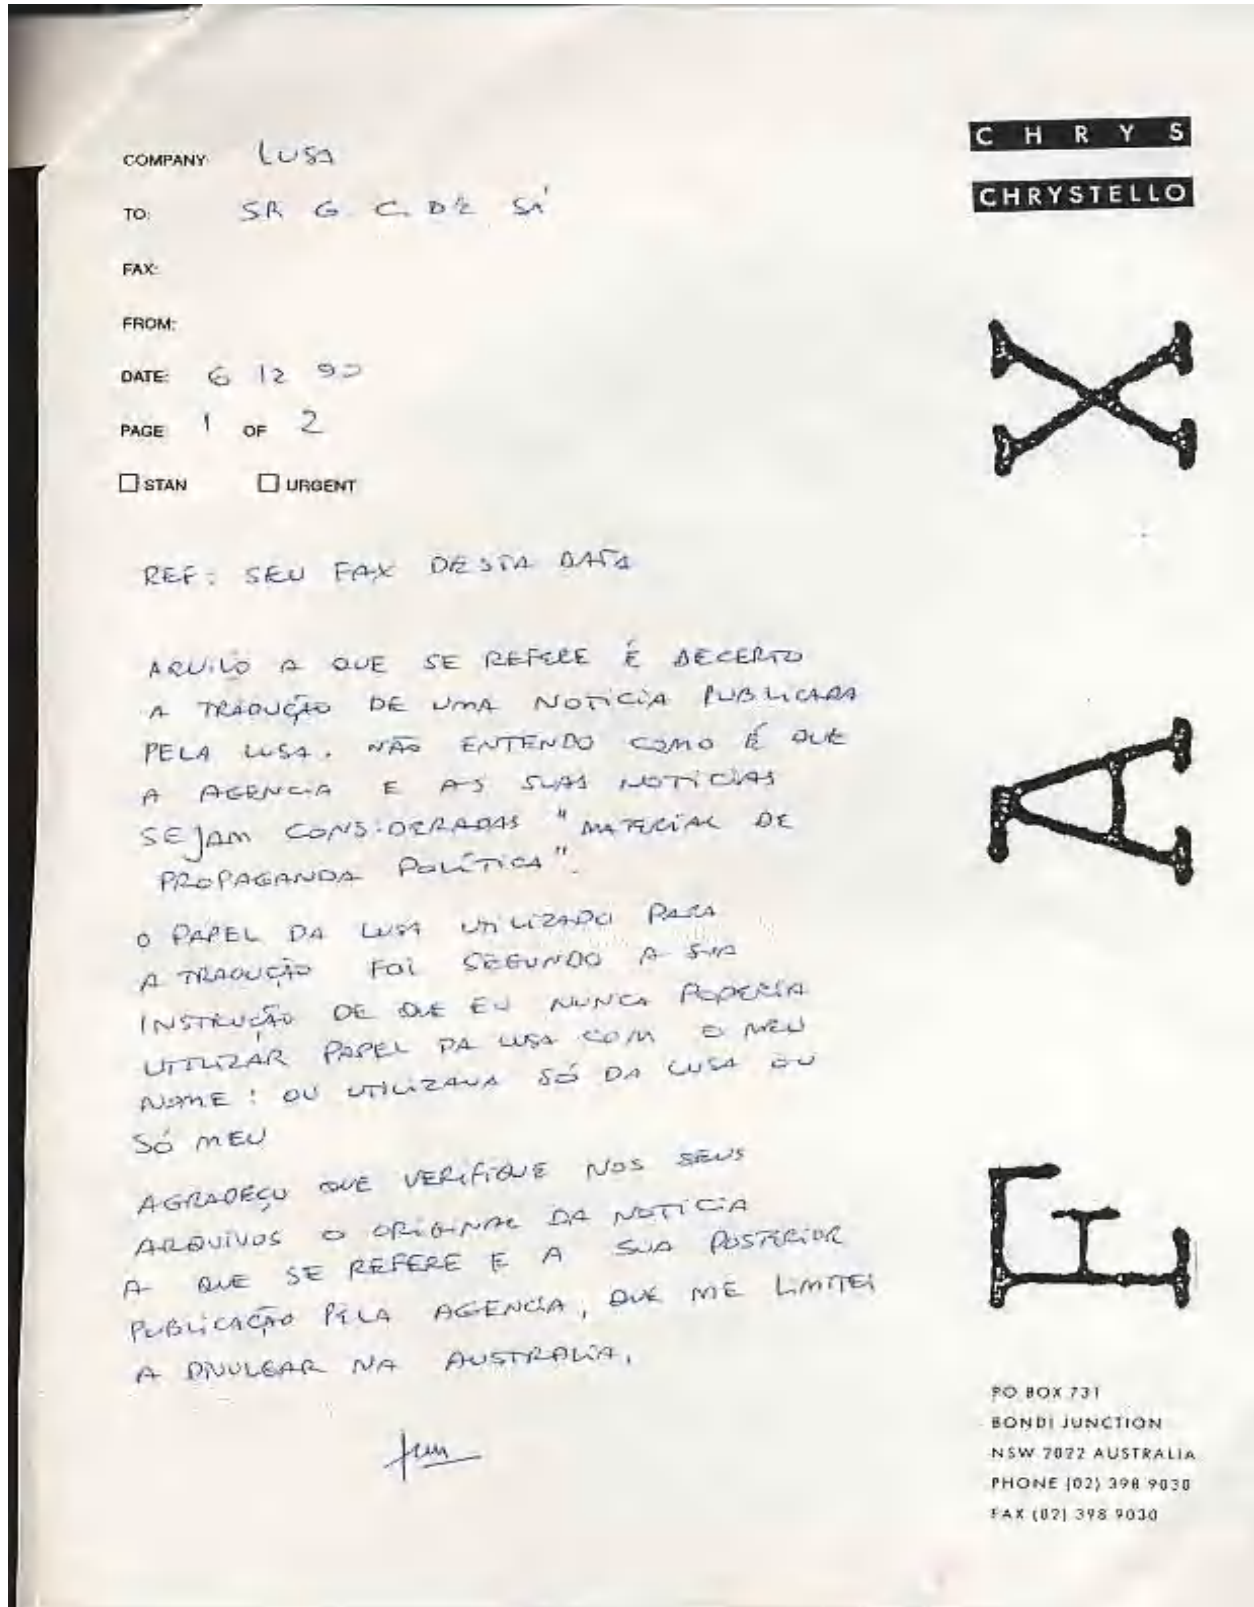 CHRYS
CHRYSTELLO
COMPANY: LUSA
TO: SR G. C. DE SÁ
FAX:
FROM:
DATE: 6 12 90
PAGE 1 OF 2
STAN URGENT
REF: SEU FAX DESTA DATA
AQUILO A QUE SE REFERE É DECERTO
A TRADUÇÃO DE UMA NOTICIA PUBLICADA
PELA LUSA. NÃO ENTENDO COMO É QUE
A AGENCIA E AS SUAS NOTICIAS
SEJAM CONSIDERADAS "MATERIAL DE
PROPAGANDA POLÍTICA".
O PAPEL DA LUSA UTILIZADO PARA
A TRADUÇÃO FOI SEGUNDO A SUA
INSTRUÇÃO DE QUE EU NUNCA PODERIA
UTILIZAR PAPEL DA LUSA COM O MEU
NOME: OU UTILIZAVA SÓ DA LUSA OU
SÓ MEU
AGRADEÇO QUE VERIFIQUE NOS SEUS
ARQUIVOS O ORIGINAL DA NOTICIA
A QUE SE REFERE E A SUA POSTERIOR
PUBLICAÇÃO PELA AGENCIA, QUE ME LIMITEI
A DIVULGAR NA AUSTRALIA.
FAX
PO BOX 731
BONDI JUNCTION
NSW 2022 AUSTRALIA
PHONE (02) 398 9030
FAX (02) 398 9030